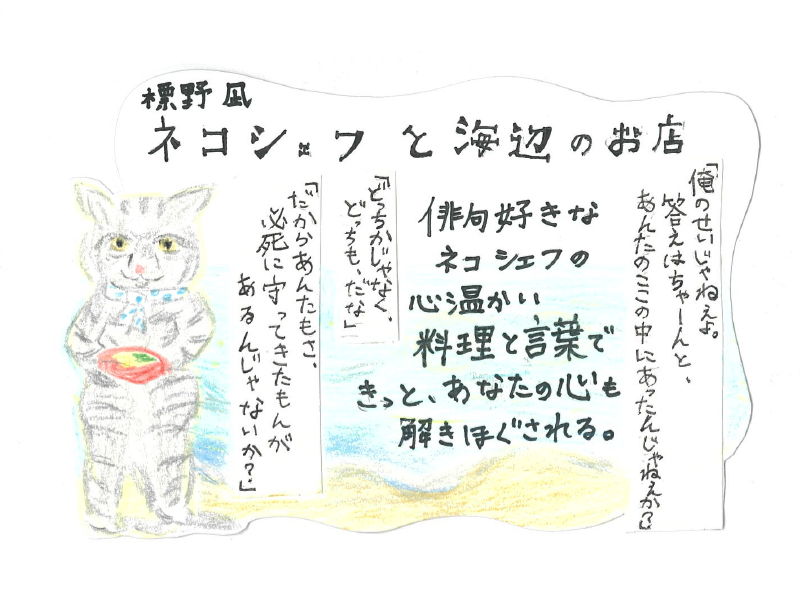 標野 凪
ネコシェフと海辺のお店
「俺のせいじゃねぇよ。
答えはちゃーんと、
あんたのここの中にあったんじゃねぇか?」
俳句好きな
ネコシェフの
心温かい
料理と言葉で
きっと、あなたの心も
解きほぐされる。
「どっちかじゃなく、
どっちも、だな」
「だからあんたもさ、
必死に守ってきたもんが
あるんじゃないか?」